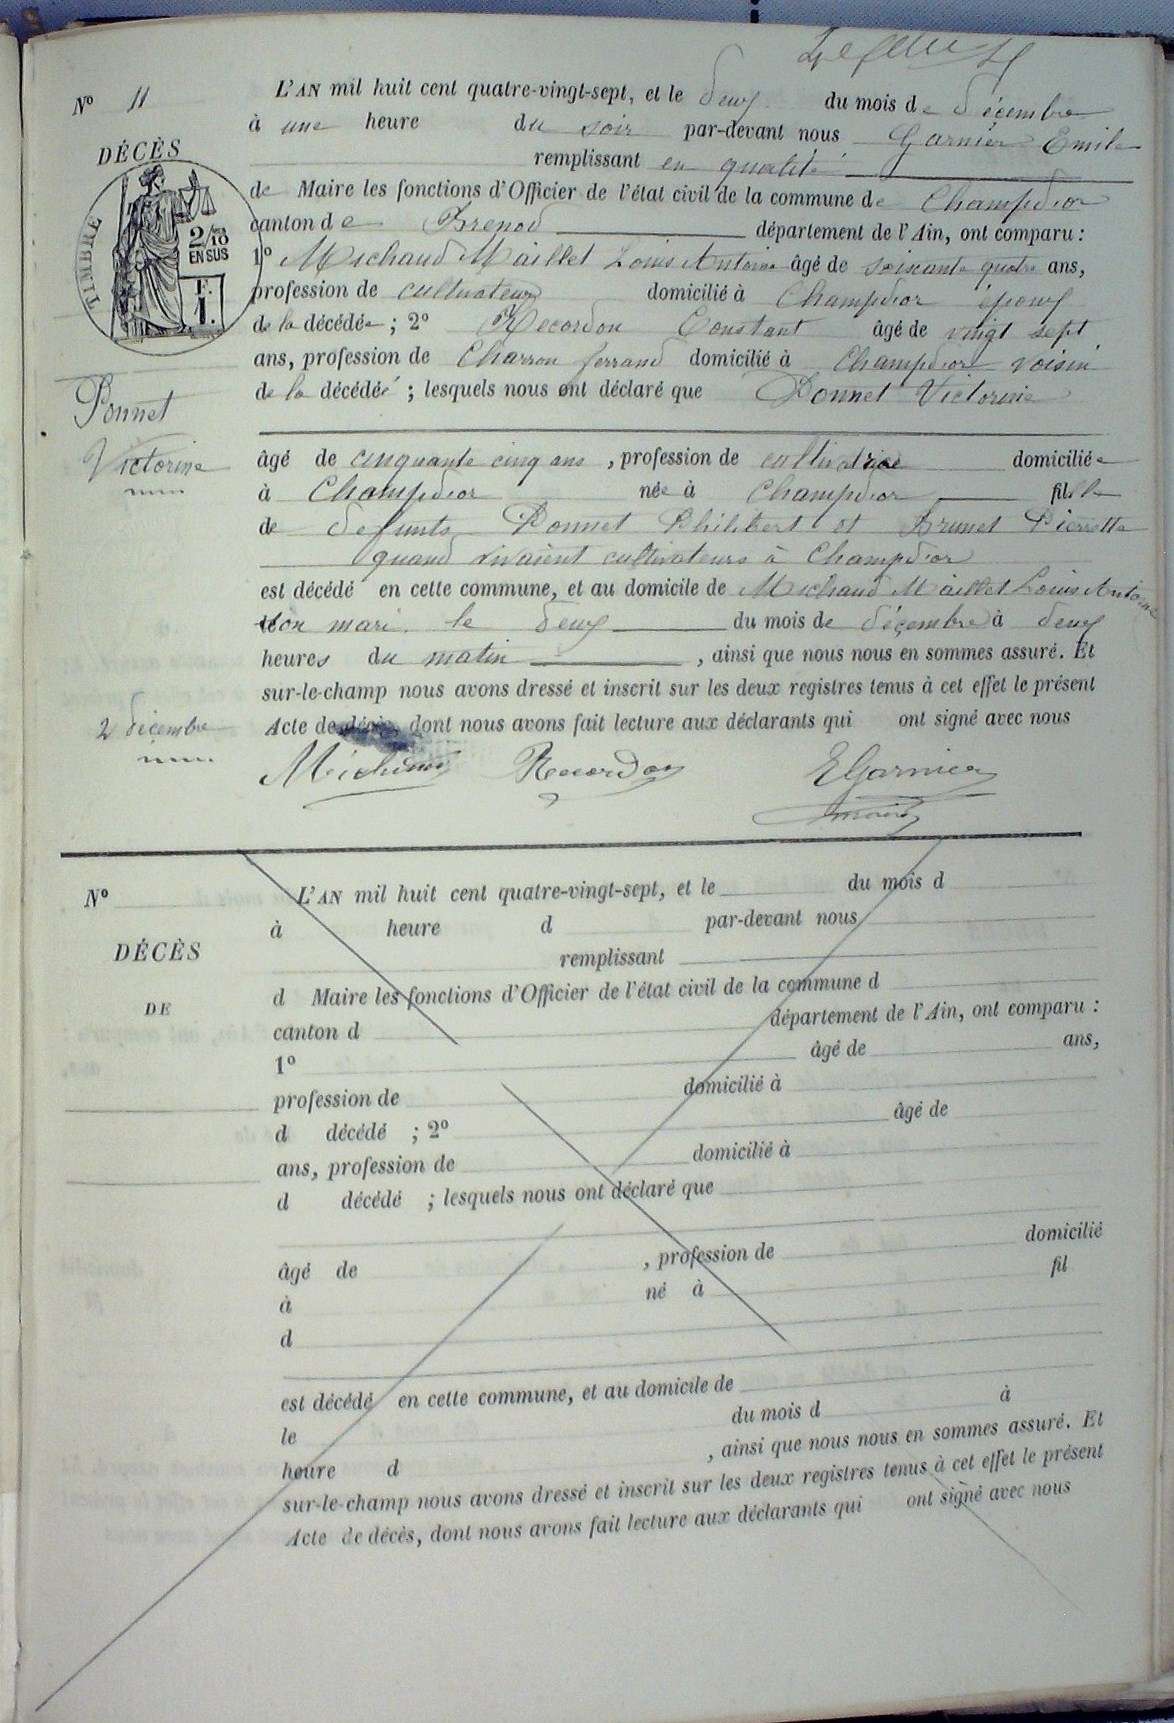 Nº 11
L'AN mil huit cent quatre-vingt-sept, et le deux du mois de décembre
à une heure du soir par-devant nous Garnier Emile
DÉCÈS
remplissant en qualité
de Maire les fonctions d'Officier de l'état civil de la commune de Champdor
canton de Brenod département de l'Ain, ont comparu :
TIMBRE
2/10 EN SUS
F. 1.
1º Michaud Maillet Louis Antoine âgé de soixante quatre ans,
profession de cultivateur domicilié à Champdor époux
de la décédée ; 2º Recordon Constant âgé de vingt sept
ans, profession de Charron ferrand domicilié à Champdor voisin
de la décédée ; lesquels nous ont déclaré que Ponnet Victorine
Ponnet
Victorine
âgé de cinquante cinq ans, profession de cultivatrice domiciliée
à Champdor née à Champdor fille
de defunts Ponnet Philibert et Brunet Pierrette
quand vivaient cultivateurs à Champdor
est décédé en cette commune, et au domicile de Michaud Maillet Louis Antoine
son mari le deux du mois de décembre à deux
heures du matin, ainsi que nous nous en sommes assuré. Et
sur-le-champ nous avons dressé et inscrit sur les deux registres tenus à cet effet le présent
2 décembre
Acte de décès, dont nous avons fait lecture aux déclarants qui ont signé avec nous
Michaud Recordon EGarnier
maire
Nº
L'AN mil huit cent quatre-vingt-sept, et le du mois d
à heure d par-devant nous
DÉCÈS
remplissant
DE
d Maire les fonctions d'Officier de l'état civil de la commune d
canton d département de l'Ain, ont comparu :
1º âgé de ans,
profession de domicilié à
d décédé ; 2º âgé de
ans, profession de domicilié à
d décédé ; lesquels nous ont déclaré que
âgé de , profession de domicilié
à né à fil
d
est décédé en cette commune, et au domicile de
le du mois d à
heure d , ainsi que nous nous en sommes assuré. Et
sur-le-champ nous avons dressé et inscrit sur les deux registres tenus à cet effet le présent
Acte de décès, dont nous avons fait lecture aux déclarants qui ont signé avec nous